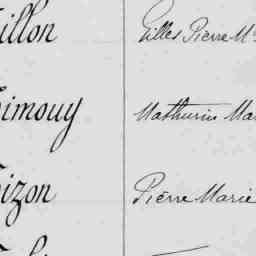 illon Gilles Pierre M
imouy Mathurin Mar
izon Pierre Marie